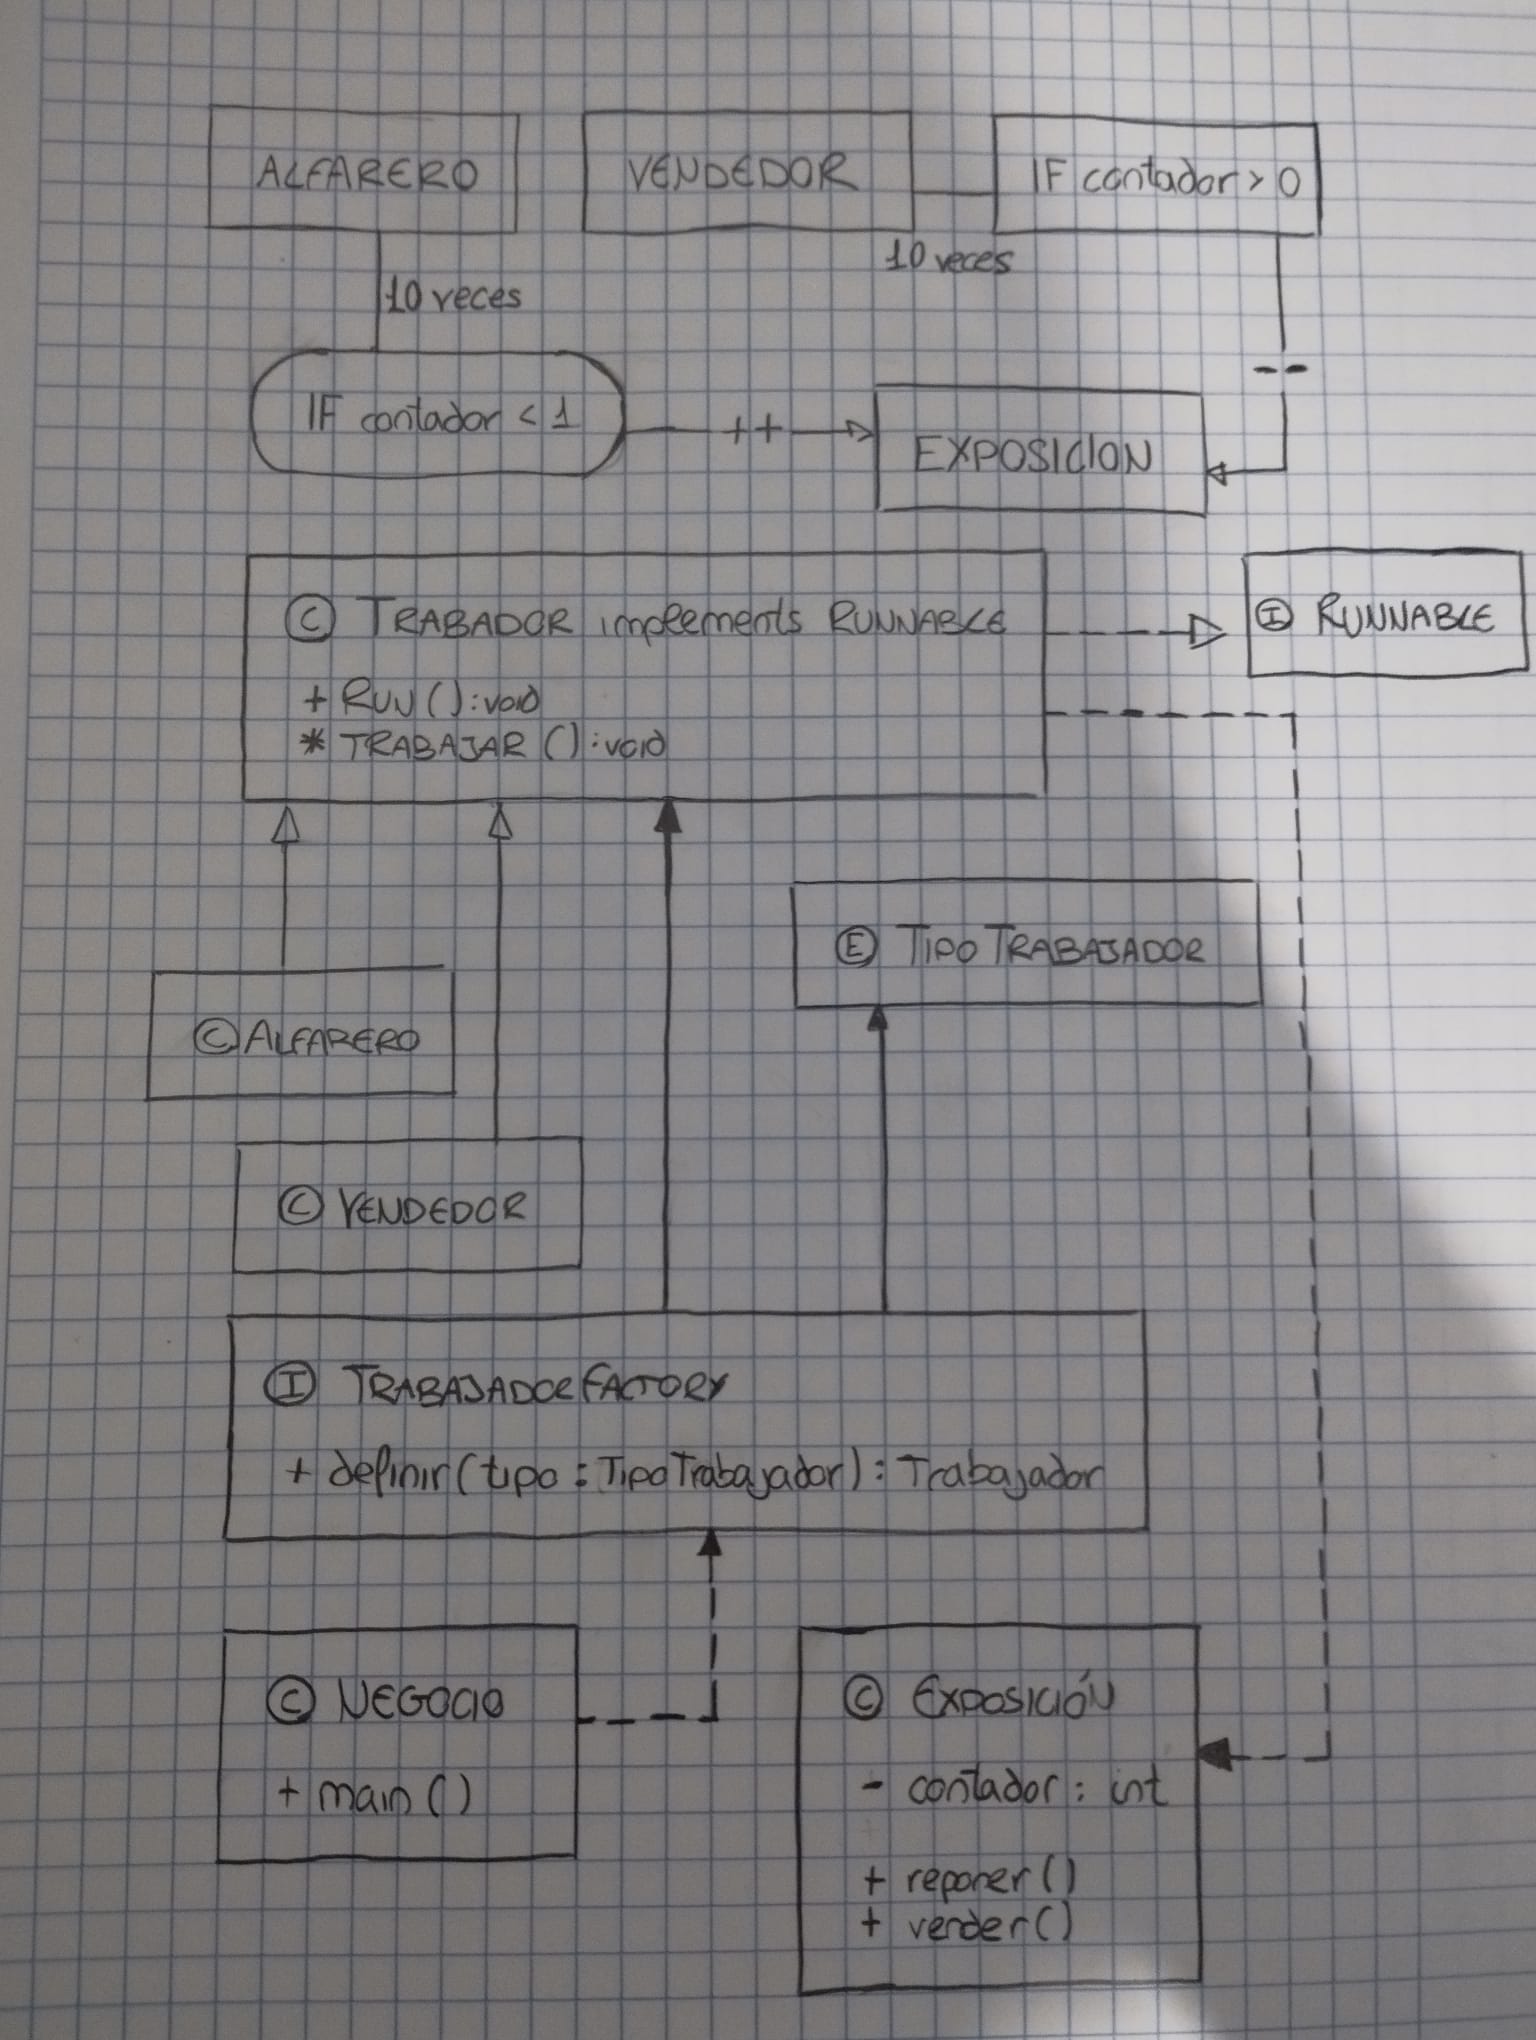 ALFARERO
VENDEDOR
IF contador > 0
10 veces
10 veces
IF contador < 1
++
--
EXPOSICION
C TRABADOR implements RUNNABLE
+ RUN () : void
* TRABAJAR () : void
I RUNNABLE
E TIPO TRABAJADOR
C ALFARERO
C VENDEDOR
I TRABAJADOR FACTORY
+ definir (tipo : TipoTrabajador) : Trabajador
C NEGOCIO
+ main ()
C EXPOSICIÓN
- contador : int
+ reponer ()
+ vender ()